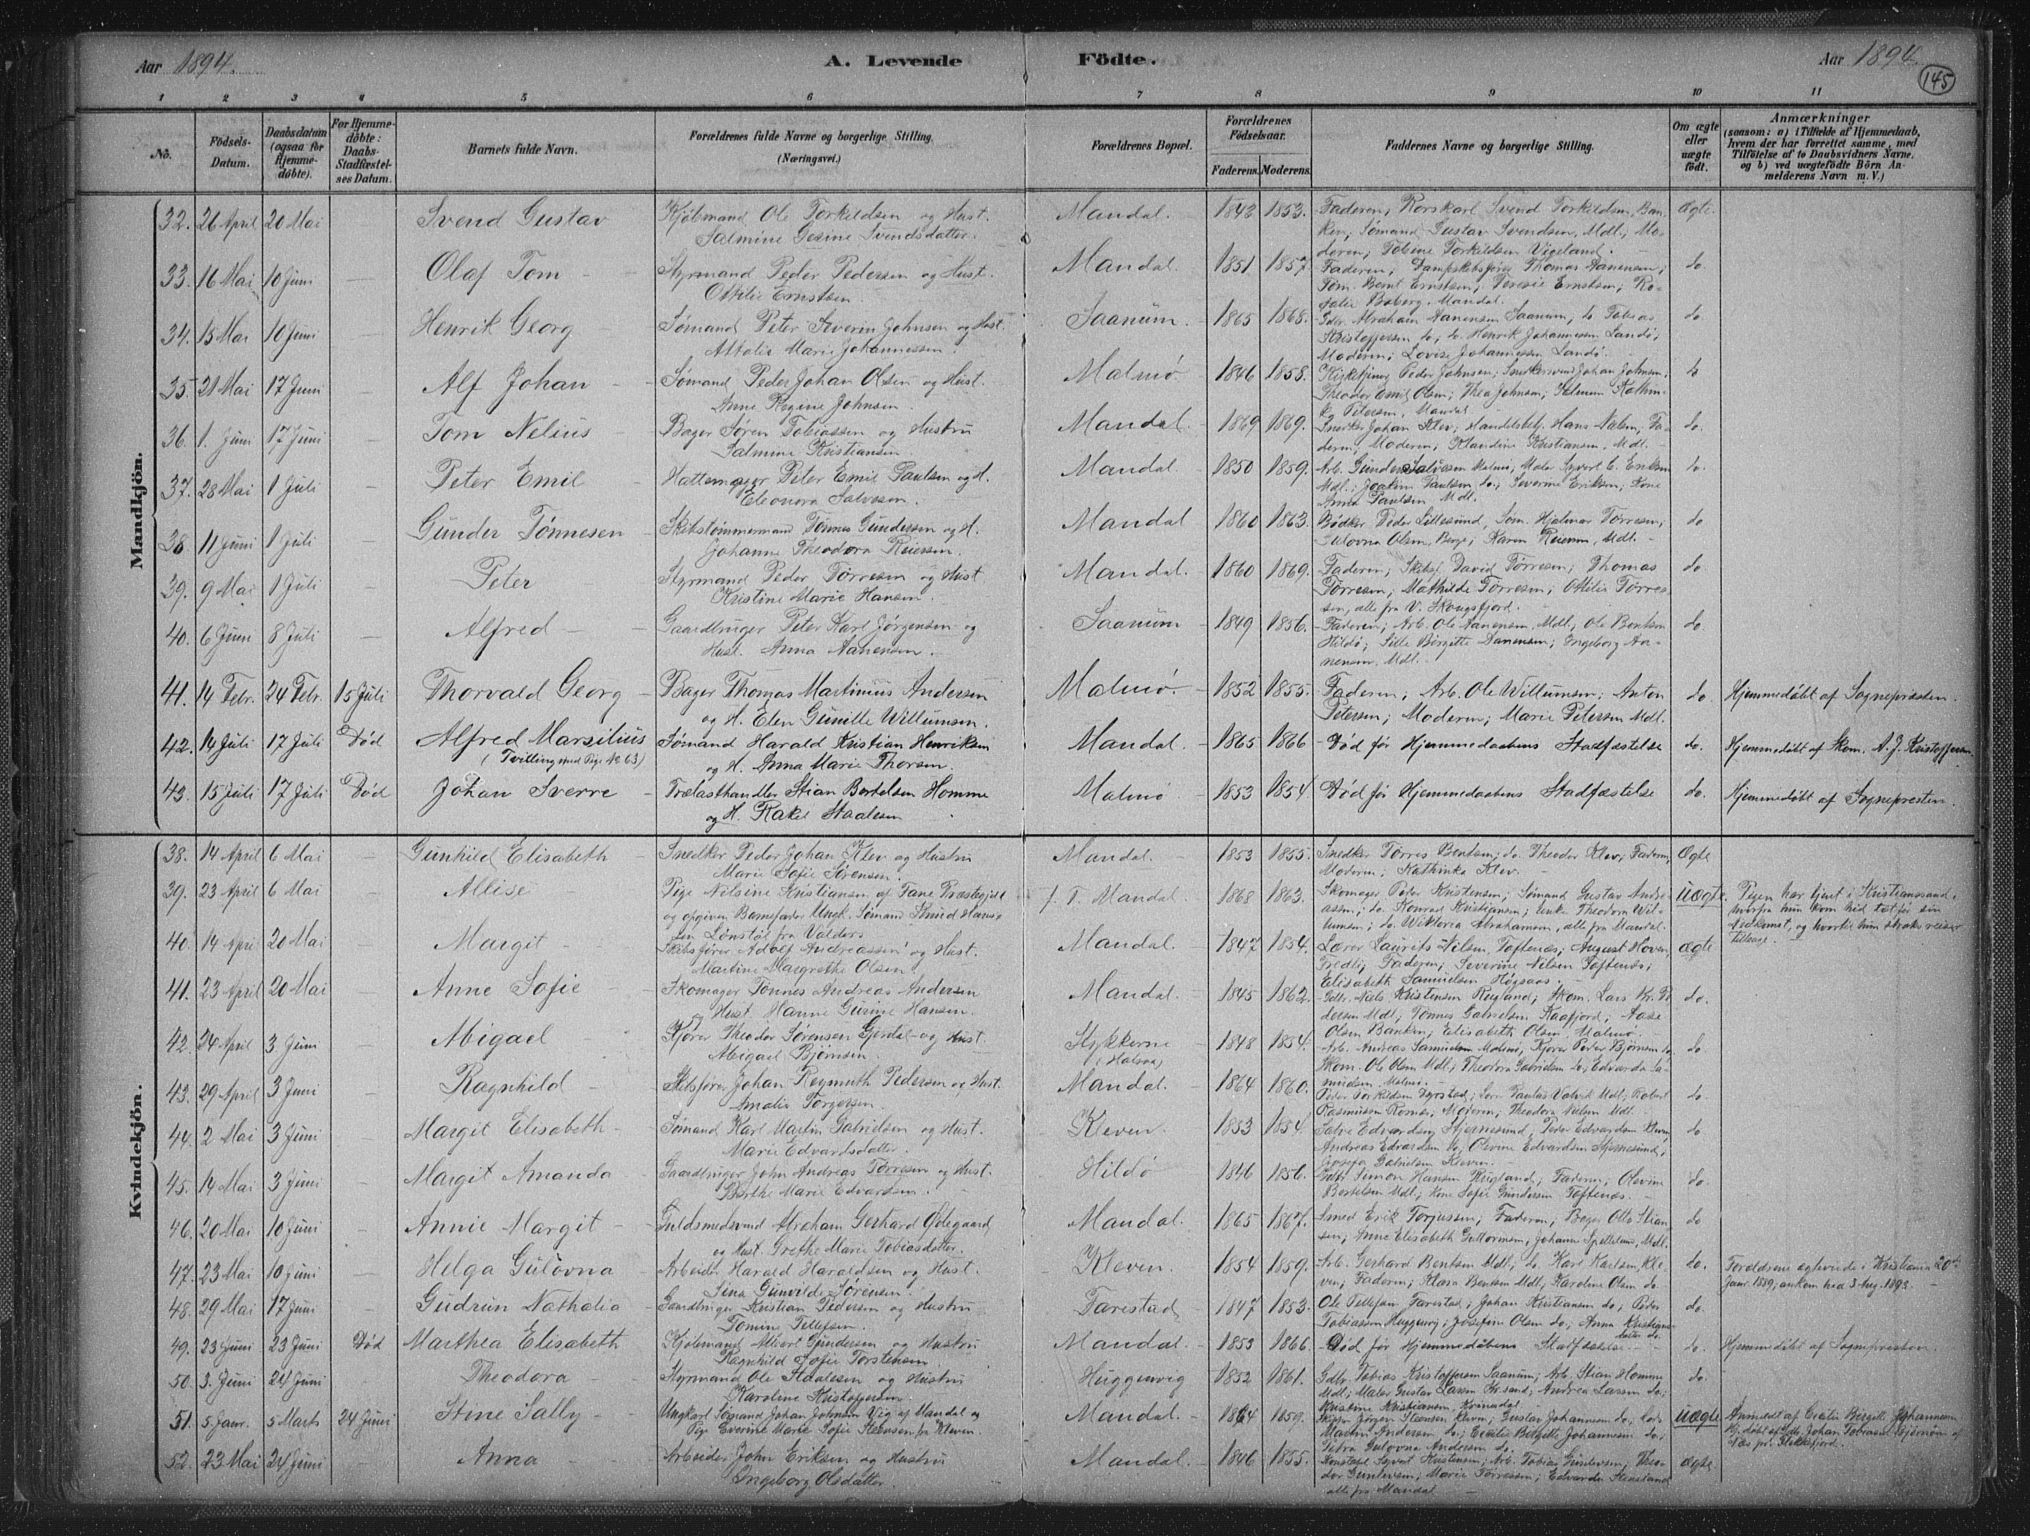 Aar 1894.
A. Levende Födte.
Aar 1894.
145
1 2 3 4 5 6 7 8 9 10 11
No.
Födsels-Datum.
Daabsdatum (ogsaa for Hjemme-döbte).
For Hjemme-döbte: Daabs-Stadfæstel-ses Datum.
Barnets fulde Navn.
Forældrenes fulde Navne og borgerlige Stilling. (Næringsvei.)
Forældrenes Bopæl.
Forældrenes Födselsaar.
Faderens. Moderens.
Faddernes Navne og borgerlige Stilling.
Om ægte eller uægte födt.
Anmærkninger
(saasom: a) i Tilfælde af Hjemmedaab, hvem der har forrettet samme, med Tilföielse af to Daabsvidners Navne, og b) ved uægtefödte Börn An-melderens Navn m. V.)
Mandkjön.
32. 26 April 20 Mai — Svend Gustav
Kjøbmand Ole Torkildsen og Hust. Salmine Gesine Svendsdatter.
Mandal. 1843 1853. Faderen, Svend Torkildsen, Sømand Gustav Svendsen, Mdl; Moderen; Tobine Torkildsen Vigeland. Ægte.
33. 16 Mai 10 Juni — Olaf Tom
Styrmand Peder Pedersen og Hust. Ottilie Ernstsen
Mandal. 1851 1857. Faderen; Thomas Danensen; Tom. Bernt Ernstsen; Teresie Ernstsen; Mandal. do.
34. 15 Mai 10 Juni — Henrik Georg
Sømand Peter Severin Johnsen og Hust. Attalie Marie Johannessen.
Saanum. 1865 1868. Gdbr. Abraham Danensen Saanum; do Tobias Kristoffersen do; do Henrik Johannessen Landø; Moderen; Lovise Johannessen Landø. do.
35. 21 Mai 17 Juni — Alf Johan
Sømand Peder Johan Olsen og Hust. Anne Regine Johnsen.
Malmø 1846 1858. Peder Johnsen; Johan Johnsen; Theodor Emil Olsen; Thea Johnsen; Petersen, Mandal do
36. 1. Juni 17 Juni — Tom Nelius
Bager Søren Tobiassen og Hustru Salmine Kristiansen
Mandal 1869 1869. Snedker Johan Klev; Handelsbetj. Hans Nilsen; Faderen, Moderen, Klandine Kristiansen, Mdl. do.
37. 28 Mai 1 Juli — Peter Emil
Hattemager Peter Emil Paulsen og H. Eleonora Salvesen.
Mandal. 1850 1859. Arb. Gunder Salvesen Malmø, Maler Syvert C. Eriksen Mdl.; Joakim Paulsen do; Severine Eriksen; Kone Anna Paulsen Mdl. do.
38 11 Juni 1 Juli — Gunder Tønnesen
Skibstømmermand Tønnes Gundersen og H. Johanne Theodora Reiersen.
Mandal 1860 1863. Bødker Peder Sillesund, Søm. Hjalmar Tørresen; Gulovna Olsen, Berge; Karen Reiersen, Mdl. do
39. 9 Mai 1 Juli — Peter
Styrmand Peder Tørresen og Hust. Kristine Marie Hansen.
Mandal. 1860 1869. Faderen; Skibsf. David Tørresen; Thomas Tørresen; Mathilde Tørresen, Ottilie Tørressen, alle fra V. Skougsfjord. do
40. 6 Juni 8 Juli — Alfred
Gaardbruger Peter Karl Jørgensen og Hust. Anna Aanensen.
Saanum 1849 1856. Faderen; Arb. Ole Aanensen, Mdl; Ole Bentsen Hildø; Sille Birgitte Danensen; Ingeborg Aanensen, Mdl. do.
41. 14 Febr. 24 Febr. 15 Juli Thorvald Georg
Bager Thomas Martinius Andersen og H. Elen Gunitte Willumsen.
Malmø. 1852 1855. Faderen; Arb. Ole Willumsen; Anton Petersen; Moderen; Marie Petersen Mdl. do. Hjemmedøbt af Sognepræsten.
42. 14 Juli 17 Juli Død Alfred Marsilius (Tvilling med Pige No 63)
Sømand Harald Kristian Henriksen og H. Anna Marie Thorsen.
Mandal. 1865 1866 Død før Hjemmedaabens Stadfæstelse do. Hjemmedøbt af Skom. A. J. Kristoffersen
43. 15 Juli 17 Juli Død Johan Sverre
Trælasthandler Stian Bertelsen Homme og H. Rakel Staalesen
Malmø 1853 1854 Død før Hjemmedaabens Stadfæstelse do. Hjemmedøbt af Sognepresten.
Kvindekjön.
38. 14 April 6 Mai — Gunhild Elisabeth
Snedker Peder Johan Klev og Hustru Marie Sofie Sørensen.
Mandal. 1853 1855. Snedker Tørres Bentsen; do. Theodor Klev; Faderen, Moderen; Kathinka Klev. Ægte
39. 23 April 6 Mai — Allise
Pige Nilsine Kristiansen af Fane Præstegjeld og opgiven Barnefader Ungk. Sømand Knud Hansen Lønstøl fra Valders
f. T. Mandal. 1868 1863. Skomager Peder Kristensen; Sømand Gustav Andreassen; do. Konrad Kristiansen; Enke Theodora Willumsen; do. Wiktoria Abrahamsen, alle fra Mandal. uægte. Pigen har tjent i Kristianssand, hvorfra hun kom hid tæt før sin Nedkomst, og hvortil hun straks reiser tilbage.
40. 14 April 20 Mai — Margit
Skibsfører Adolf Andreassen og Hust. Martine Margrethe Olsen.
Mandal. 1847 1854. Lærer Lauritz Nilsen, Toftenæs; August Hoven Fredli, Faderen; Severine Nilsen Toftenæs; Elisabeth Samuelsen Høgsaas. ægte
41. 23 April 20 Mai — Anne Sofie
Skomager Tønnes Andreas Andersen og Hust. Hanne Gurine Hansen.
Mandal. 1845 1862. Gdbr. Niels Kristensen Rugland; Skom. Lars Kr. Pedersen Mdl; Tønnes Gabrielsen Kaafjord; Aase Olsen Banken; Elisabeth Olsen Malmø. do.
42. 24 April 3 Juni — Abigael
Kjører Theodor Sørensen Gjerdal og Hust. Abigael Bjørnsen.
Stykkerne (Halsaa) 1848 1854. Arb. Andreas Samuelsen Malmø; Kjører Peder Bjørnsen do; Skom. Ole Olsen Mdl; Theodora Gabrielsen do; Edvarda Samuelsen Malmø. do.
43. 29 April 3 Juni — Ragnhild
Skibsfører Johan Reymuth Pedersen og Hust. Amalie Torgersen.
Mandal. 1864 1860. Peder Torkildsen; Paulus Mdl; Robert Rasmussen; Moderen; Theodora Nielsen Mdl. do
44. 2 Mai 3 Juni — Margit Elisabeth
Sømand Karl Martin Gabrielsen og Hust. Marie Edvardsdatter.
Kleven. 1853 1854 Salve Edvardsen Stjernesund; Peder Edvardsen Kleven; Andreas Edvardsen do, Olevine Edvardsen Stjernesund; Josefa Gabrielsen Kleven. do
45. 14 Mai 3 Juni — Margit Amanda
Gaardbruger John Andreas Tørresen og Hust. Berthe Marie Edvardsen.
Hildø 1846 1856. Gdbr Simon Hansen Rugland; Faderen; Olevine Bertelsen Mdl; Kone Sofie Gundersen Toftenæs. do.
46. 20 Mai 10 Juni — Annie Margit
Guldsmedsvend Abraham Gerhard Ødegaard, og Hust. Grethe Marie Tobiasdatter.
Mandal. 1865 1867. Smed Erik Torjussen; Faderen; Bager Otto Stiansen; Anne Elisabeth Guttormsen, Johanne Mdl. do
47. 23 Mai 10 Juni — Helga Gulovna
Arbeider Harald Haraldsen og Hust. Sina Gunvalde Sørensen.
Kleven. 1854 1859. Arb. Gerhard Bentsen Mdl; do. Karl Karlsen, Kleven; Faderen; Klara Bentsen Mdl, Karoline Olsen do. do. Forældrene ægteviede i Kristiania 20de Janr. 1889, ankom hid 3 Aug. 1893.
48. 29 Mai 17 Juni — Gudrun Nathalia
Gaardbruger Kristian Pedersen og Hustru Tomine Tellefsen.
Tarestad 1847 1853. Ole Tellefsen Tarestad; Johan Kristiansen do; Peder Tobiassen Huggenvig; Josefine Olsen do; Anna Kristiansdatter do. do.
49. 23 Juni 23 Juni Død Marthea Elisabeth
Kjøbmand Albert Gundersen og Hustru Ragnhild Sofie Torstensen.
Mandal. 1853 1866. Død før Hjemmedaabens Stadfæstelse. do. Hjemmedøbt af Sognepresten.
50. 3. Juni 24 Juni — Theodora
Styrmand Ole Staalesen og Hustru Karoline Kristoffersen.
Huggenvig 1852 1861. Gdbr Tobias Kristoffersen Saanum; Arb. Stian Homme Mdl; Maler Gustav Larsen Kr.sand; Andrea Larsen do; Kristine Kristiansen, Kr.mandal do.
51. 5. Janr. 5 Marts 24 Juni Stine Sally
Ungkarl Sømand Johan Johnsen Vig af Mandal og Pige Everine Marie Sofie Steensen fra Kleven.
Mandal. 1864 1859. Skipper Jørgen Steensen Kleven; Gustav Johannesen do; Martin Andersen do; Cecilie Birgitte Johannesen do; Petra Gulovna Andersen do. uægte Anmeldt af Cecilie Birgitte Johannesen. Hj. døbt af Gdbr. Johan Tobiassen Bjørnom af Næs pr. Flekkefjord.
52. 23 Mai 24 Juni — Anna
Arbeider John Eriksen og Hustru Ingeborg Olsdatter.
Mandal 1846 1855. Konstabel Syvert Kristensen; Arb. Tobias Gundersen; Theodor Gundersen; Marie Tørresen; Edvarda alle fra Mandal ægte.